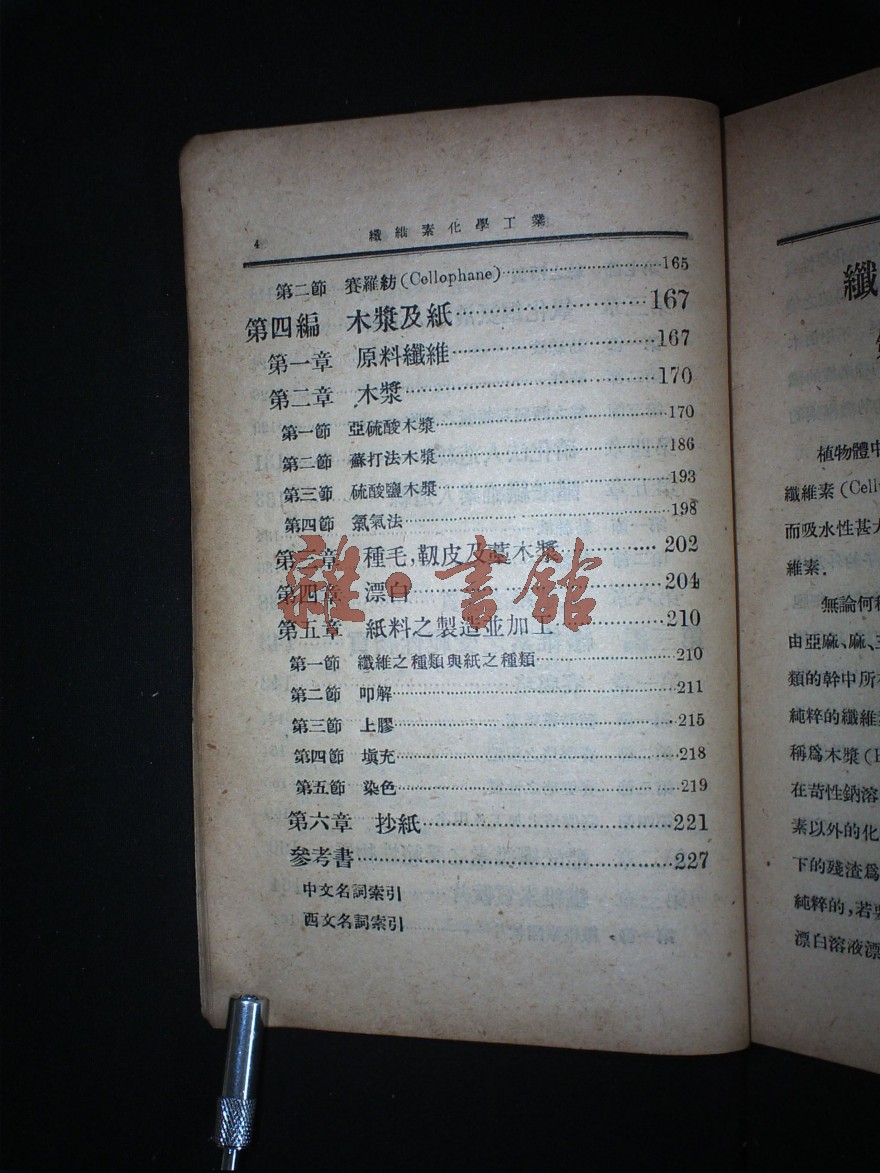 4 纖維素化學工業
第二節 賽羅紡(Cellophane)165
第四編 木漿及紙167
第一章 原料纖維167
第二章 木漿170
第一節 亞硫酸木漿170
第二節 蘇打法木漿186
第三節 硫酸鹽木漿193
第四節 氯氣法198
第三章 種毛,靱皮及藁木漿202
第四章 漂白204
第五章 紙料之製造並加工210
第一節 纖維之種類與紙之種類210
第二節 叩解211
第三節 上膠215
第四節 填充218
第五節 染色219
第六章 抄紙221
參考書227
中文名詞索引
西文名詞索引
雜·書館
纖
植物體中
纖維素(Cell
而吸水性甚大
維素.
無論何種
由亞麻、麻、
類的幹中所
純粹的纖維
稱爲木漿(
在苛性鈉溶
素以外的化
下的殘渣爲
純粹的,若
漂白溶液漂